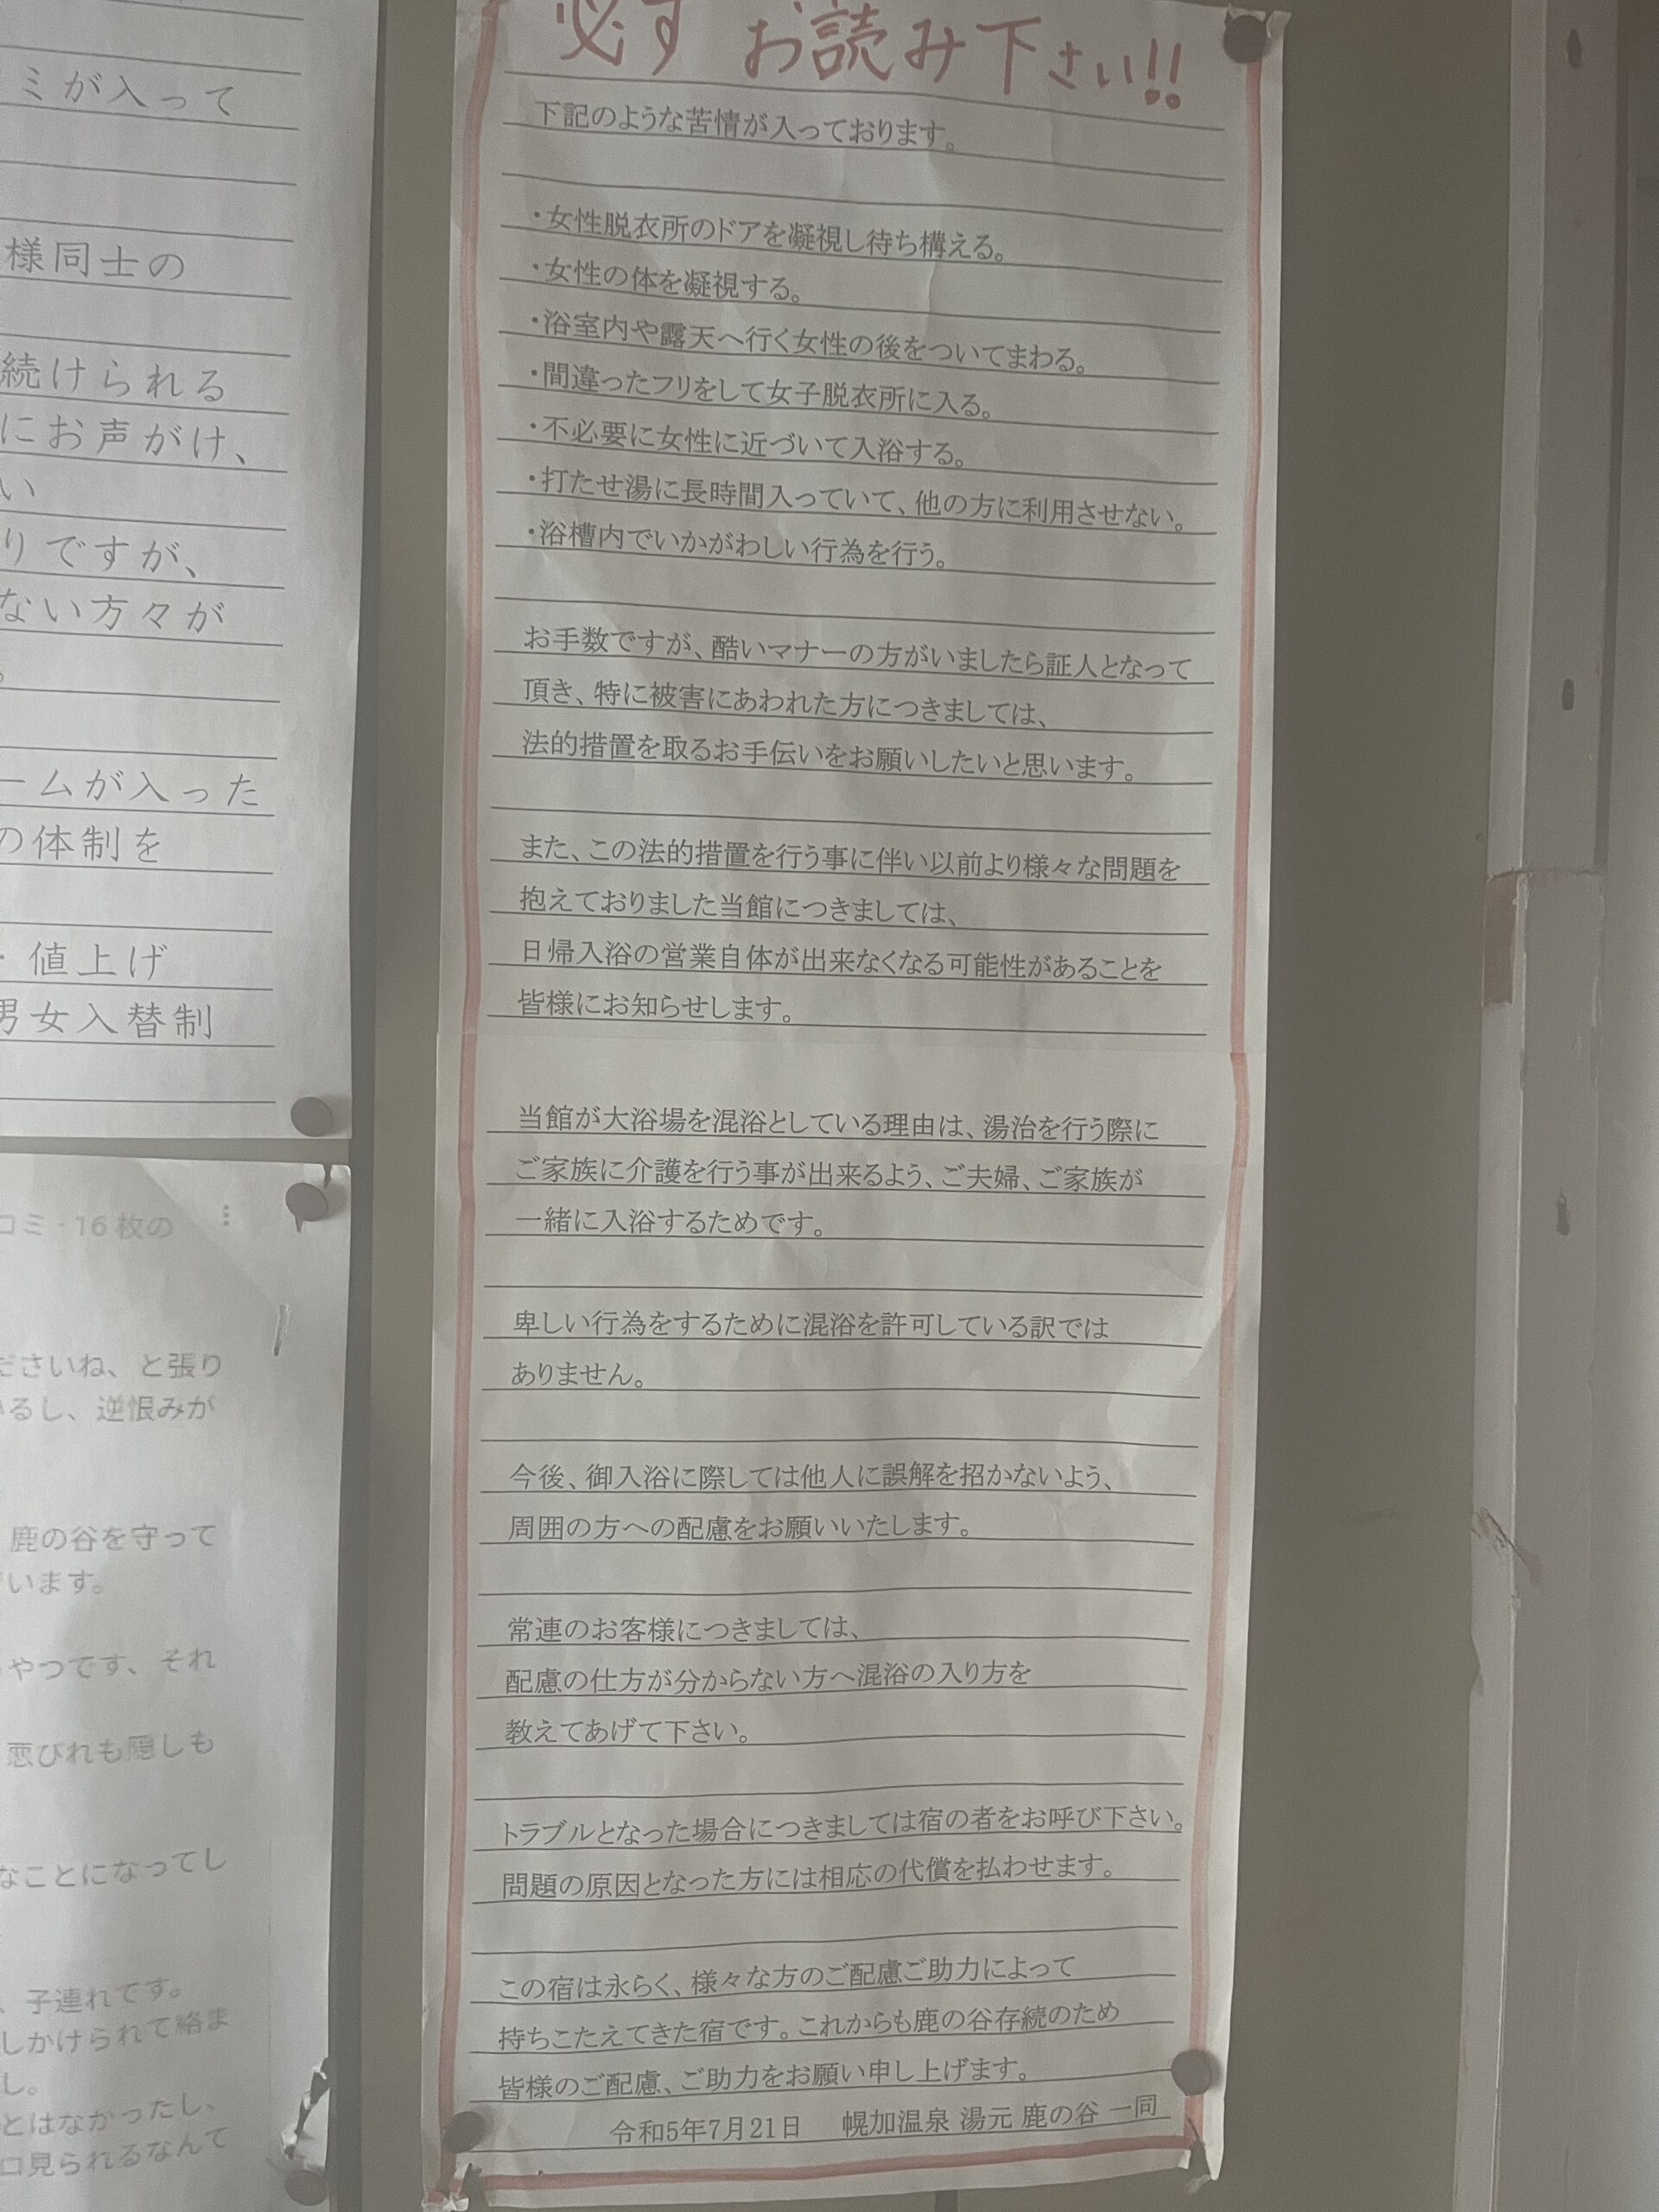 ミが入って
様同士の
続けられる
にお声がけ、
い
りですが、
ない方々が
。
ームが入った
の体制を
値上げ
男女入替制
コミ・16枚の
ださいね、と張り
るし、逆恨みが
鹿の谷を守って
います。
やつです、それ
悪びれも隠しも
なことになってし
、子連れです。
しかけられて絡ま
し。
とはなかったし、
ロ見られるなんて
必ず お読み下さい!!
下記のような苦情が入っております。
・女性脱衣所のドアを凝視し待ち構える。
・女性の体を凝視する。
・浴室内や露天へ行く女性の後をついてまわる。
・間違ったフリをして女子脱衣所に入る。
・不必要に女性に近づいて入浴する。
・打たせ湯に長時間入っていて、他の方に利用させない。
・浴槽内でいかがわしい行為を行う。
お手数ですが、酷いマナーの方がいましたら証人となって
頂き、特に被害にあわれた方につきましては、
法的措置を取るお手伝いをお願いしたいと思います。
また、この法的措置を行う事に伴い以前より様々な問題を
抱えておりました当館につきましては、
日帰入浴の営業自体が出来なくなる可能性があることを
皆様にお知らせします。
当館が大浴場を混浴としている理由は、湯治を行う際に
ご家族に介護を行う事が出来るよう、ご夫婦、ご家族が
一緒に入浴するためです。
卑しい行為をするために混浴を許可している訳では
ありません。
今後、御入浴に際しては他人に誤解を招かないよう、
周囲の方への配慮をお願いいたします。
常連のお客様につきましては、
配慮の仕方が分からない方へ混浴の入り方を
教えてあげて下さい。
トラブルとなった場合につきましては宿の者をお呼び下さい。
問題の原因となった方には相応の代償を払わせます。
この宿は永らく、様々な方のご配慮ご助力によって
持ちこたえてきた宿です。これからも鹿の谷存続のため
皆様のご配慮、ご助力をお願い申し上げます。
令和5年7月21日 幌加温泉 湯元 鹿の谷 一同